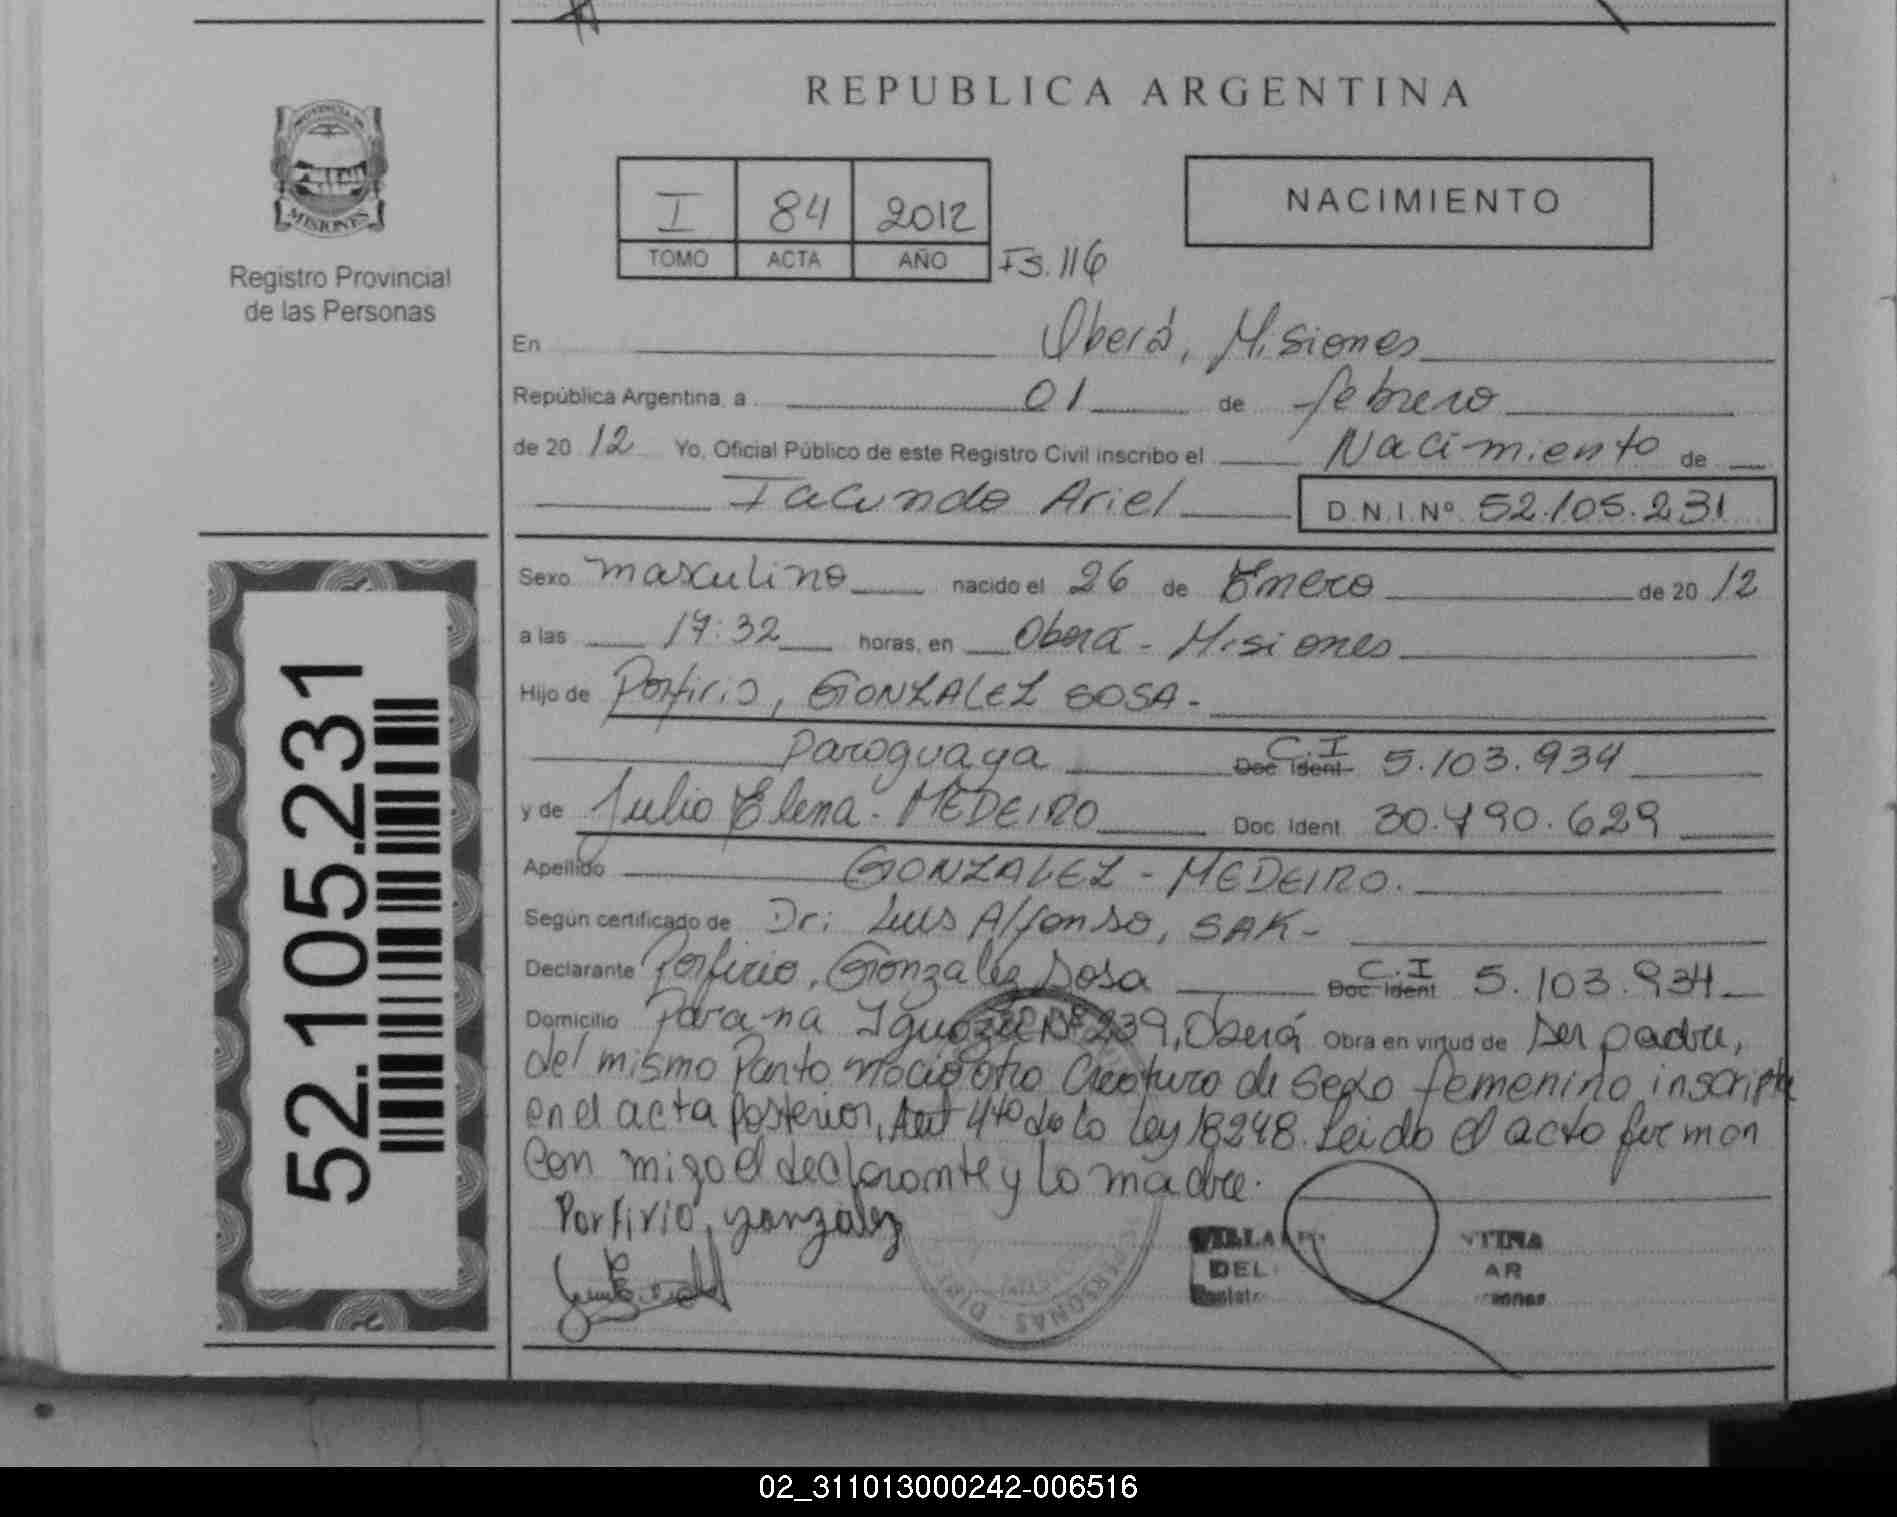 REPUBLICA ARGENTINA
PROVINCIA DE
MISIONES
Registro Provincial
de las Personas
I 84 2012
TOMO ACTA AÑO
Fs. 116
NACIMIENTO
En Oberá, Misiones
República Argentina, a 01 de febrero
de 2012 Yo, Oficial Público de este Registro Civil inscribo el Nacimiento de
Facundo Ariel D.N.I.Nº 52.105.231
Sexo masculino nacido el 26 de Enero de 2012
a las 17:32 horas, en Oberá - Misiones
Hijo de Porfirio, GONZALEZ SOSA -
Paraguaya Doc Ident C.I 5.103.934
y de Julia Elena - MEDEIRO Doc. Ident. 30.790.629
Apellido GONZALEZ - MEDEIRO.
Según certificado de Dr: Luis Alfonso, SAK -
Declarante Porfirio, Gonzalez Sosa Doc Ident C.I 5.103.934
Domicilio Parana Iguazu Nº 239, Oberá Obra en virtud de ser padre,
del mismo Parto nacio otra Creatura de sexo femenino inscripta
en el acta posterior, Art 4to de la Ley 18248. Leido el acta firman
con migo el declarante y la madre.
Porfirio, gonzalez
DEL
52.105.231
02_311013000242-006516